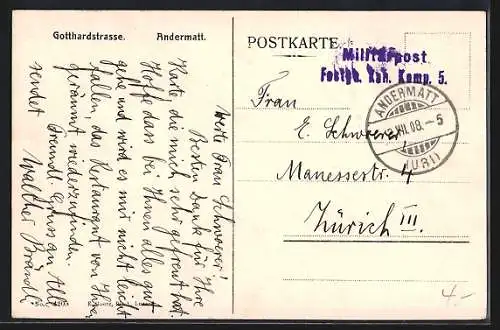 Gotthardstrasse. Andermatt.
POSTKARTE
Militärpost
Festgs. Kan. Komp. 5.
ANDERMATT
VII. 08. - 5
(URI)
Frau
E. Schwerer
Manessestr. 4
Zürich III.
Werte Frau Schwerer!
Besten Dank für Ihre
Karte, die mich sehr gefreut hat.
Hoffe dass bei Ihnen alles gut
gehe und wird es mir nicht leicht
fallen, das Restaurant von
geräumt wiederzufinden.
Freundl. Gruss an Alle
sendet
Walther Brändli
4.-